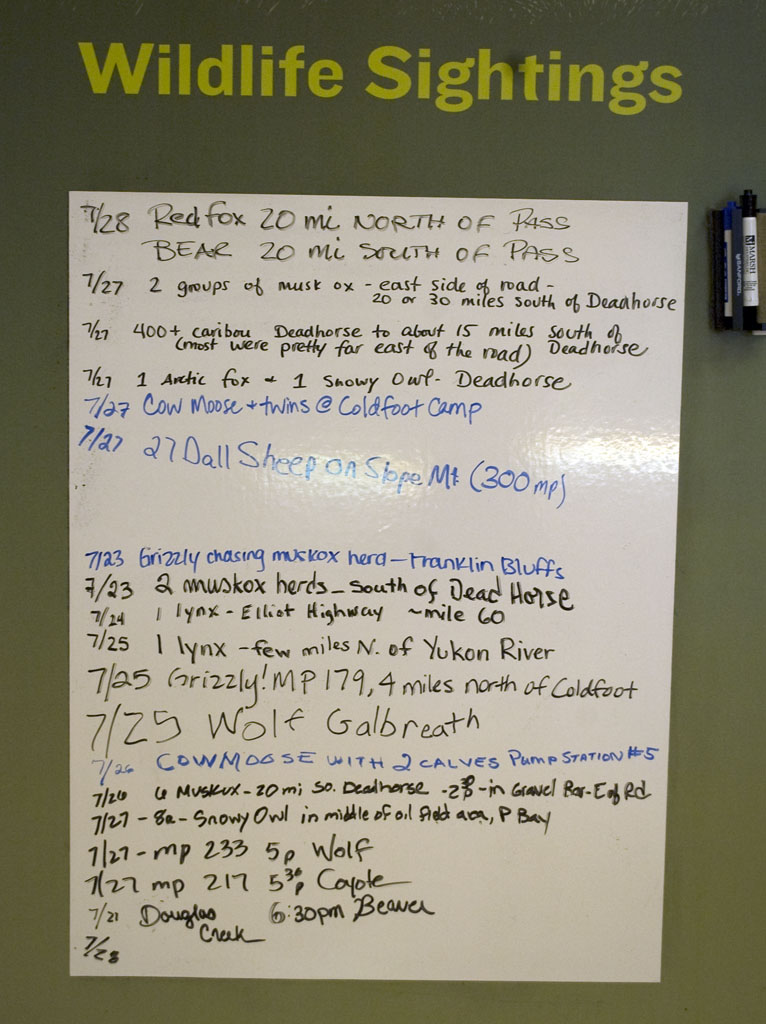 Wildlife Sightings
7/28 Red fox 20 mi NORTH OF PASS
BEAR 20 mi SOUTH OF PASS
7/27 2 groups of musk ox - east side of road -
20 or 30 miles south of Deadhorse
7/27 400+ caribou Deadhorse to about 15 miles south of
(most were pretty far east of the road) Deadhorse
7/27 1 Arctic fox + 1 Snowy Owl - Deadhorse
7/27 Cow Moose + twins @ Coldfoot Camp
7/27 27 Dall Sheep on Slope Mt (300 mp)
7/23 Grizzly chasing muskox herd - Franklin Bluffs
7/23 2 muskox herds - South of Dead Horse
7/24 1 lynx - Elliot Highway ~mile 60
7/25 1 lynx - few miles N. of Yukon River
7/25 Grizzly! MP 179, 4 miles north of Coldfoot
7/25 Wolf Galbreath
7/26 COW MOOSE WITH 2 CALVES PUMP STATION #5
7/26 6 Muskox - 20 mi So. Deadhorse - 2 30 - in Gravel Bar - E of Rd
7/27 - 8a - Snowy Owl in middle of oil field area, P Bay
7/27 - mp 233 5p Wolf
7/27 mp 217 5 30 p Coyote
7/21 Douglas 6:30pm Beaver
Creek
7/28
MARSH
SANFORD